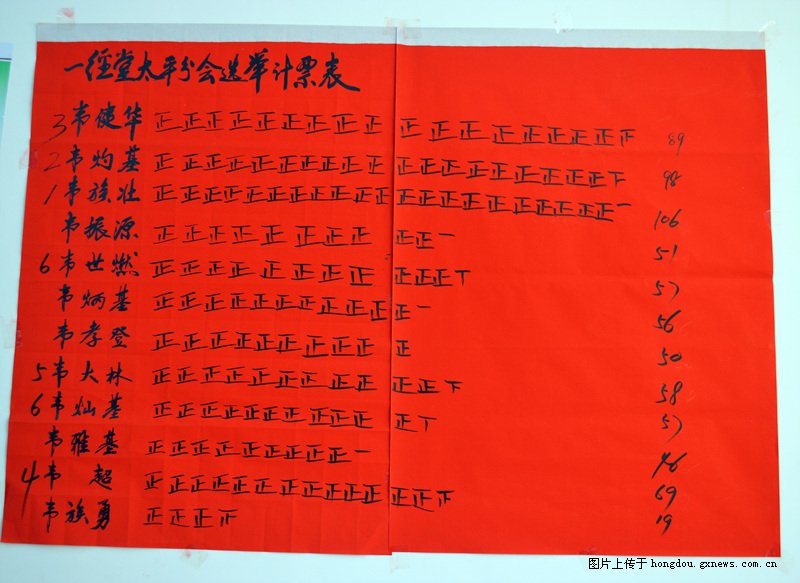 一经堂太平分会选举计票表
3 韦使华 正正正正正正正正正 正正正正正正正正下 89
2 韦灼基 正正正正正正正正正正 正正正正正正正正正下 98
1 韦族壮 正正正正正正正正正正正 正正正正正正正正正正一 106
韦振源 正正正正正正正正 正正一 51
6 韦世燃 正正正正正正正正 正正正丅 57
韦炳基 正正正正正正正正正正 正一 56
韦孝登 正正正正正正正正正 正 50
5 韦大林 正正正正正正正正正 正正下 58
6 韦灿基 正正正正正正正正正正 正丅 57
韦雅基 正正正正正正正正正一 46
4 韦 超 正正正正正正正正正正正 正正下 69
韦族勇 正正正下 19
图片上传于 hongdou.gxnews.com.cn